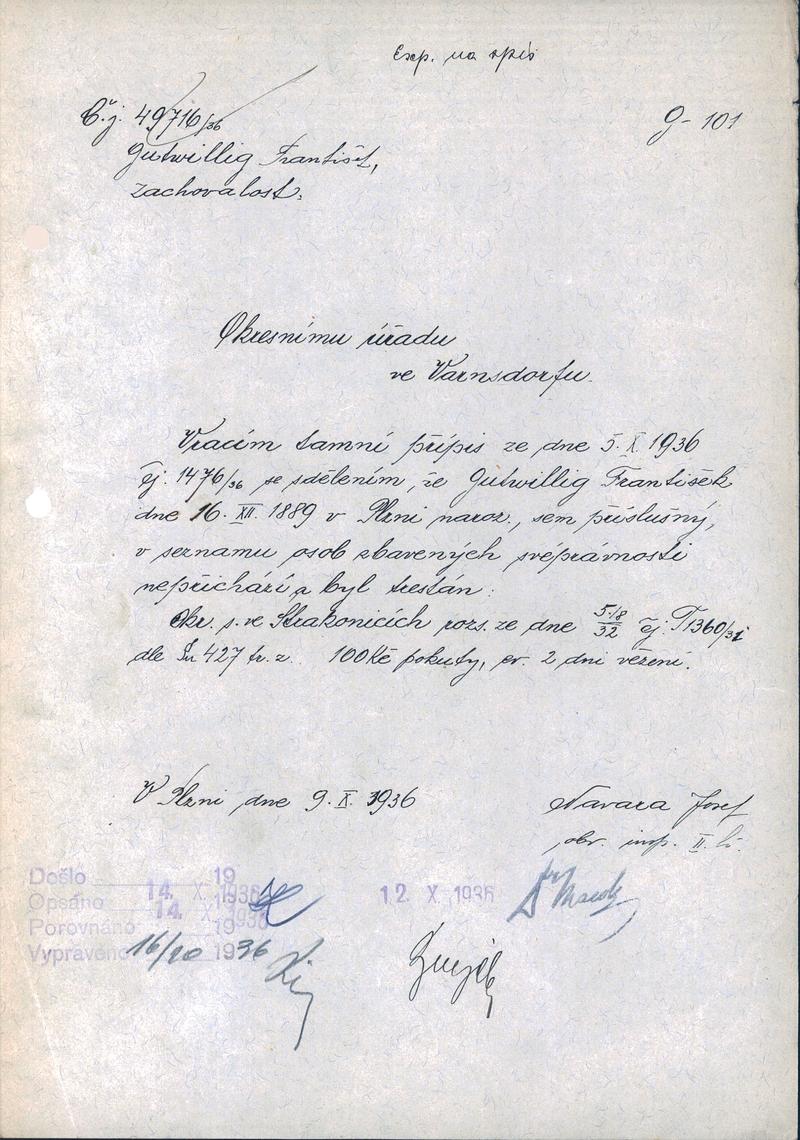 Exp. na spis
Č.j. 49716/36
G- 101
Gutwillig František,
zachovalost.
Okresnímu úřadu
ve Varnsdorfu.
Vracím tamní přípis ze dne 5. X. 1936
čj. 1476/36 se sdělením, že Gutwillig František
dne 16. XII. 1889 v Plzni naroz., sem příslušný,
v seznamu osob zbavených svéprávnosti
nepřichází a byl trestán:
Okr. s. ve Strakonicích rozs. ze dne 5./8 32 čj. T 1360/31
dle § 427 tr. z. 100 Kč pokuty, ev. 2 dni vězení.
V Plzni dne 9. X. 1936
Navara Josef
obv. insp. II. tř.
Došlo 19
Opsáno 14. X. 1936
12. X. 1936
Porovnáno 14. X. 1936
Vypraveno 16/10 1936